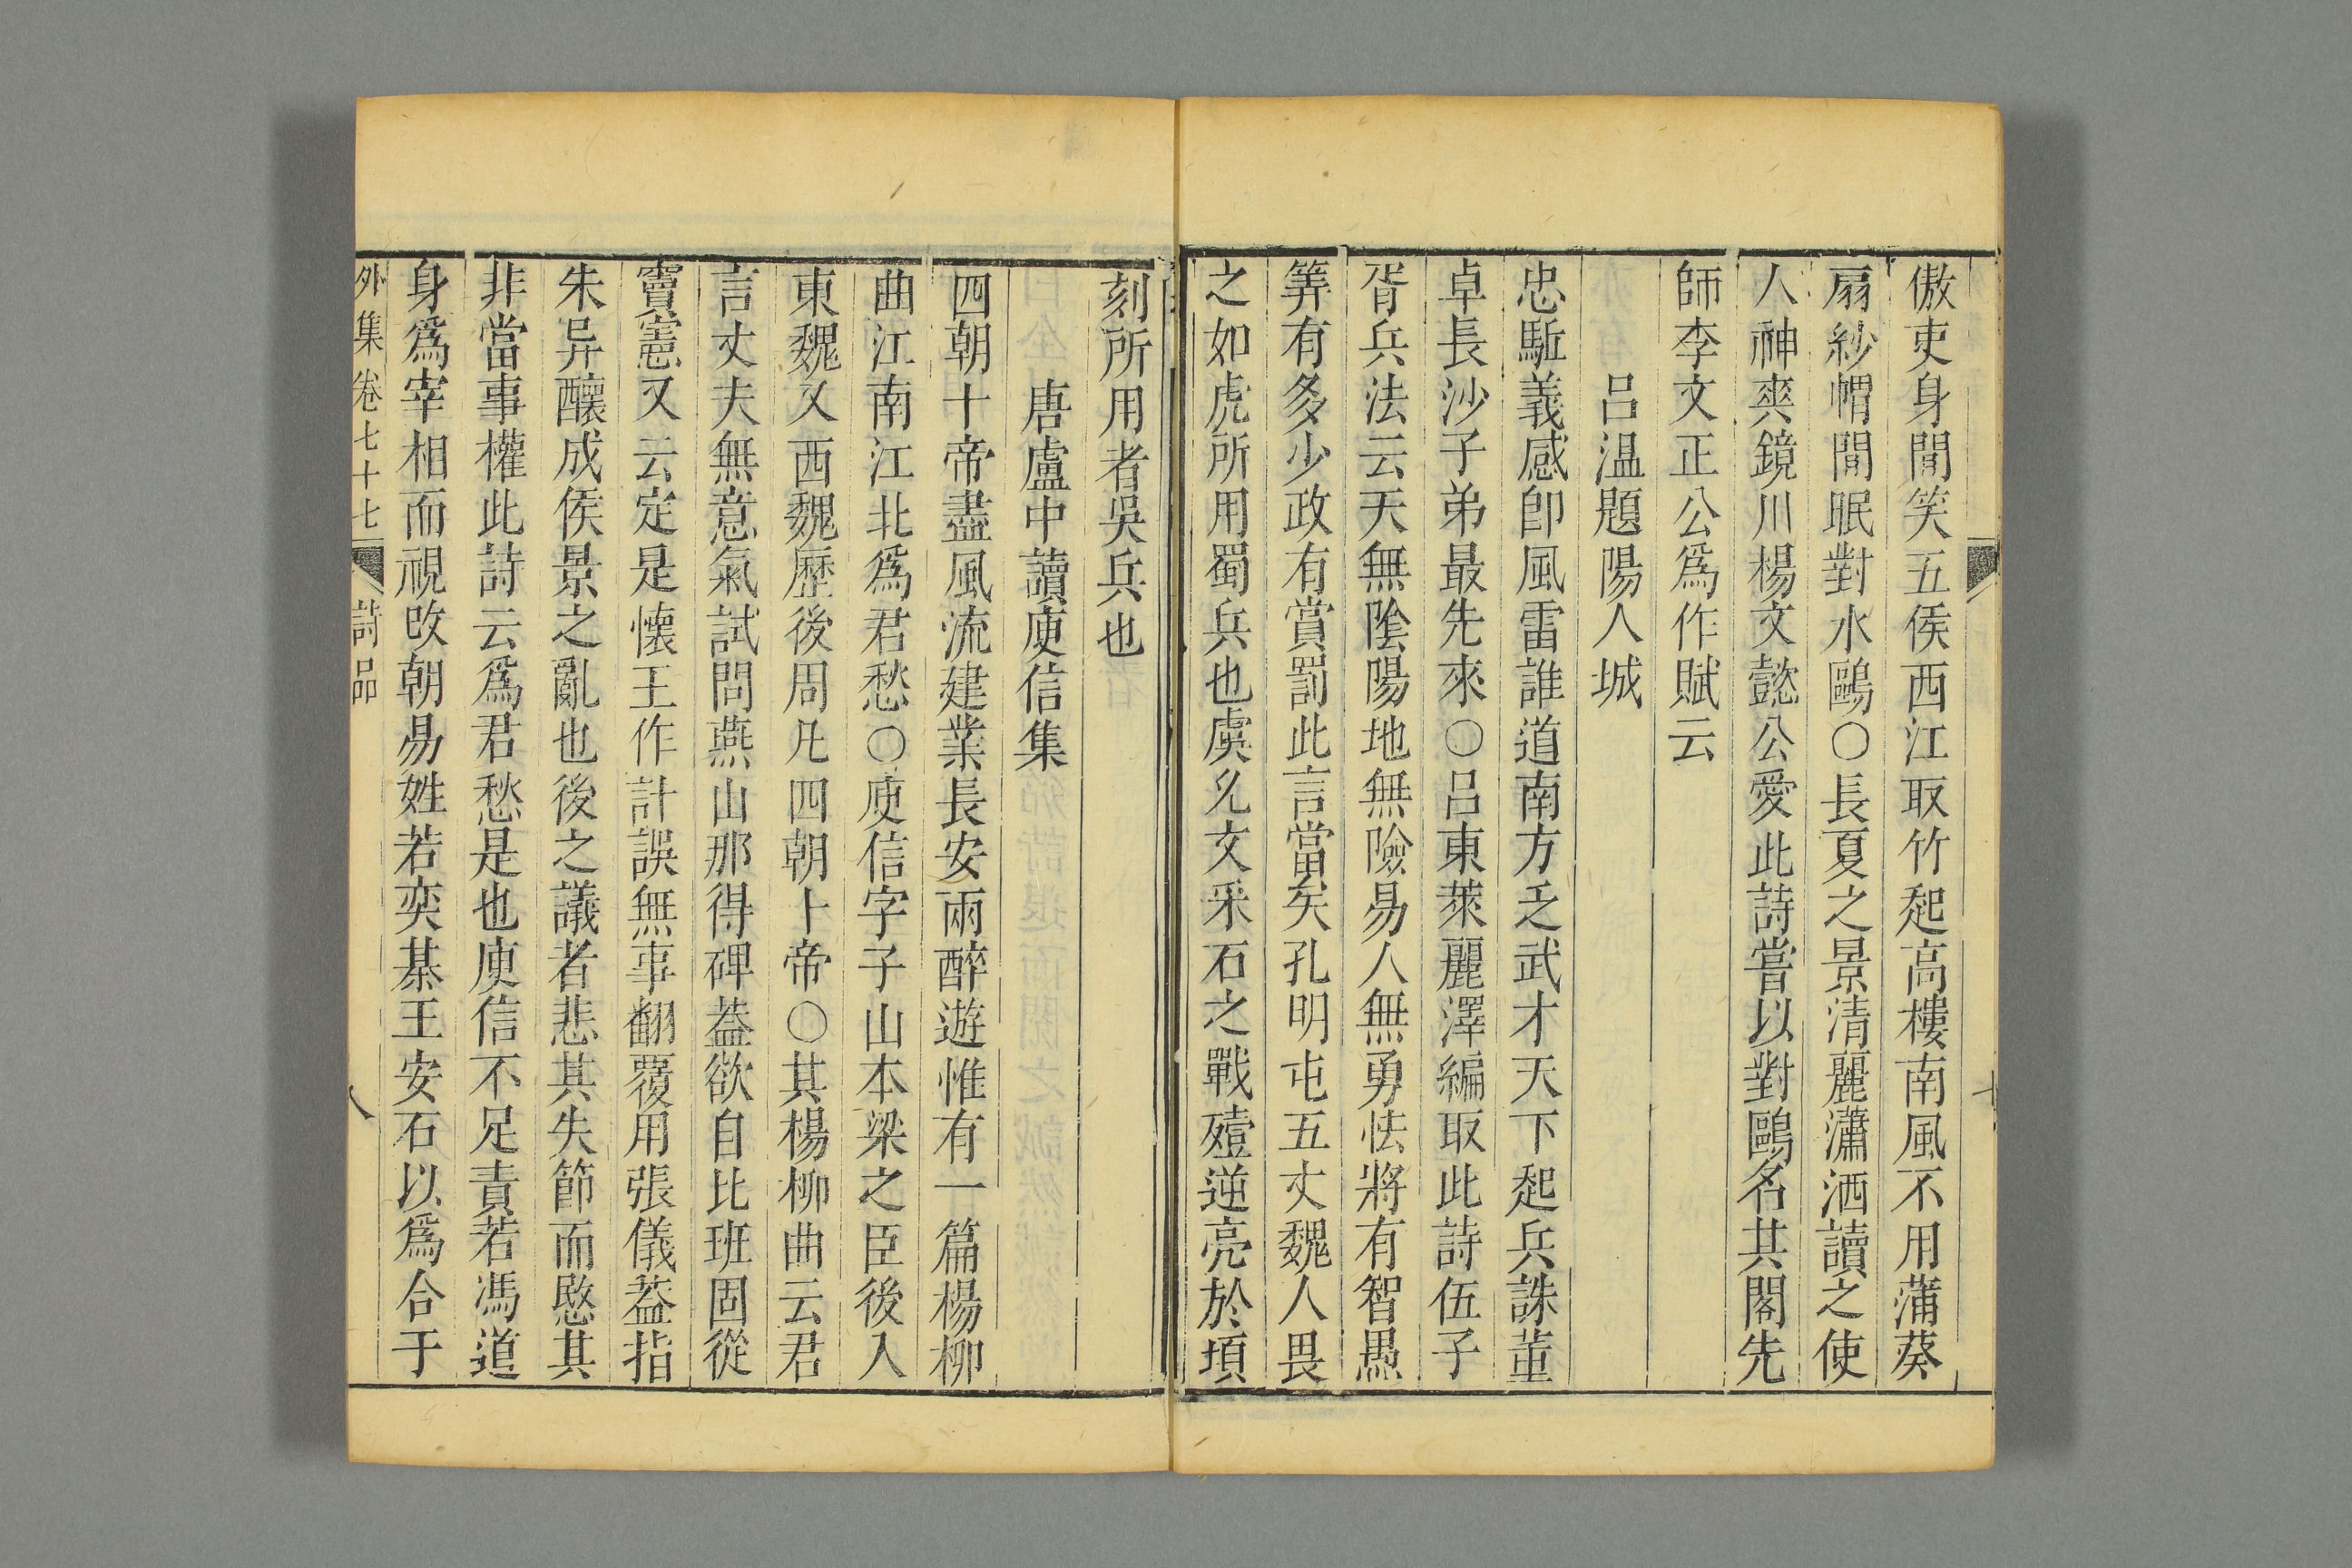 傲吏身閒笑五侯西江取竹起高樓南風不用蒲葵
扇紗帽閒眠對水鷗○長夏之景清麗瀟洒讀之使
人神爽鏡川楊文懿公愛此詩嘗以對鷗名其閣先
師李文正公爲作賦云
呂温題陽人城
忠駈義感卽風雷誰道南方乏武才天下起兵誅董
卓長沙子弟最先來○呂東萊麗澤編取此詩伍子
胥兵法云天無陰陽地無險易人無勇怯將有智愚
筭有多少政有賞罰此言當矣孔明屯五丈魏人畏
之如虎所用蜀兵也虞允文采石之戰殪逆亮於頃
刻所用者吳兵也
唐盧中讀庾信集
四朝十帝盡風流建業長安兩醉遊惟有一篇楊柳
曲江南江北爲君愁○庾信字子山本梁之臣後入
東魏又西魏歷後周凡四朝十帝○其楊柳曲云君
言丈夫無意氣試問燕山那得碑葢欲自比班固從
竇憲又云定是懷王作計誤無事翻覆用張儀葢指
朱异釀成侯景之亂也後之議者悲其失節而愍其
非當事權此詩云爲君愁是也庾信不足責若馮道
身爲宰相而視改朝易姓若奕棊王安石以爲合于
外集卷七十七 詩品 八